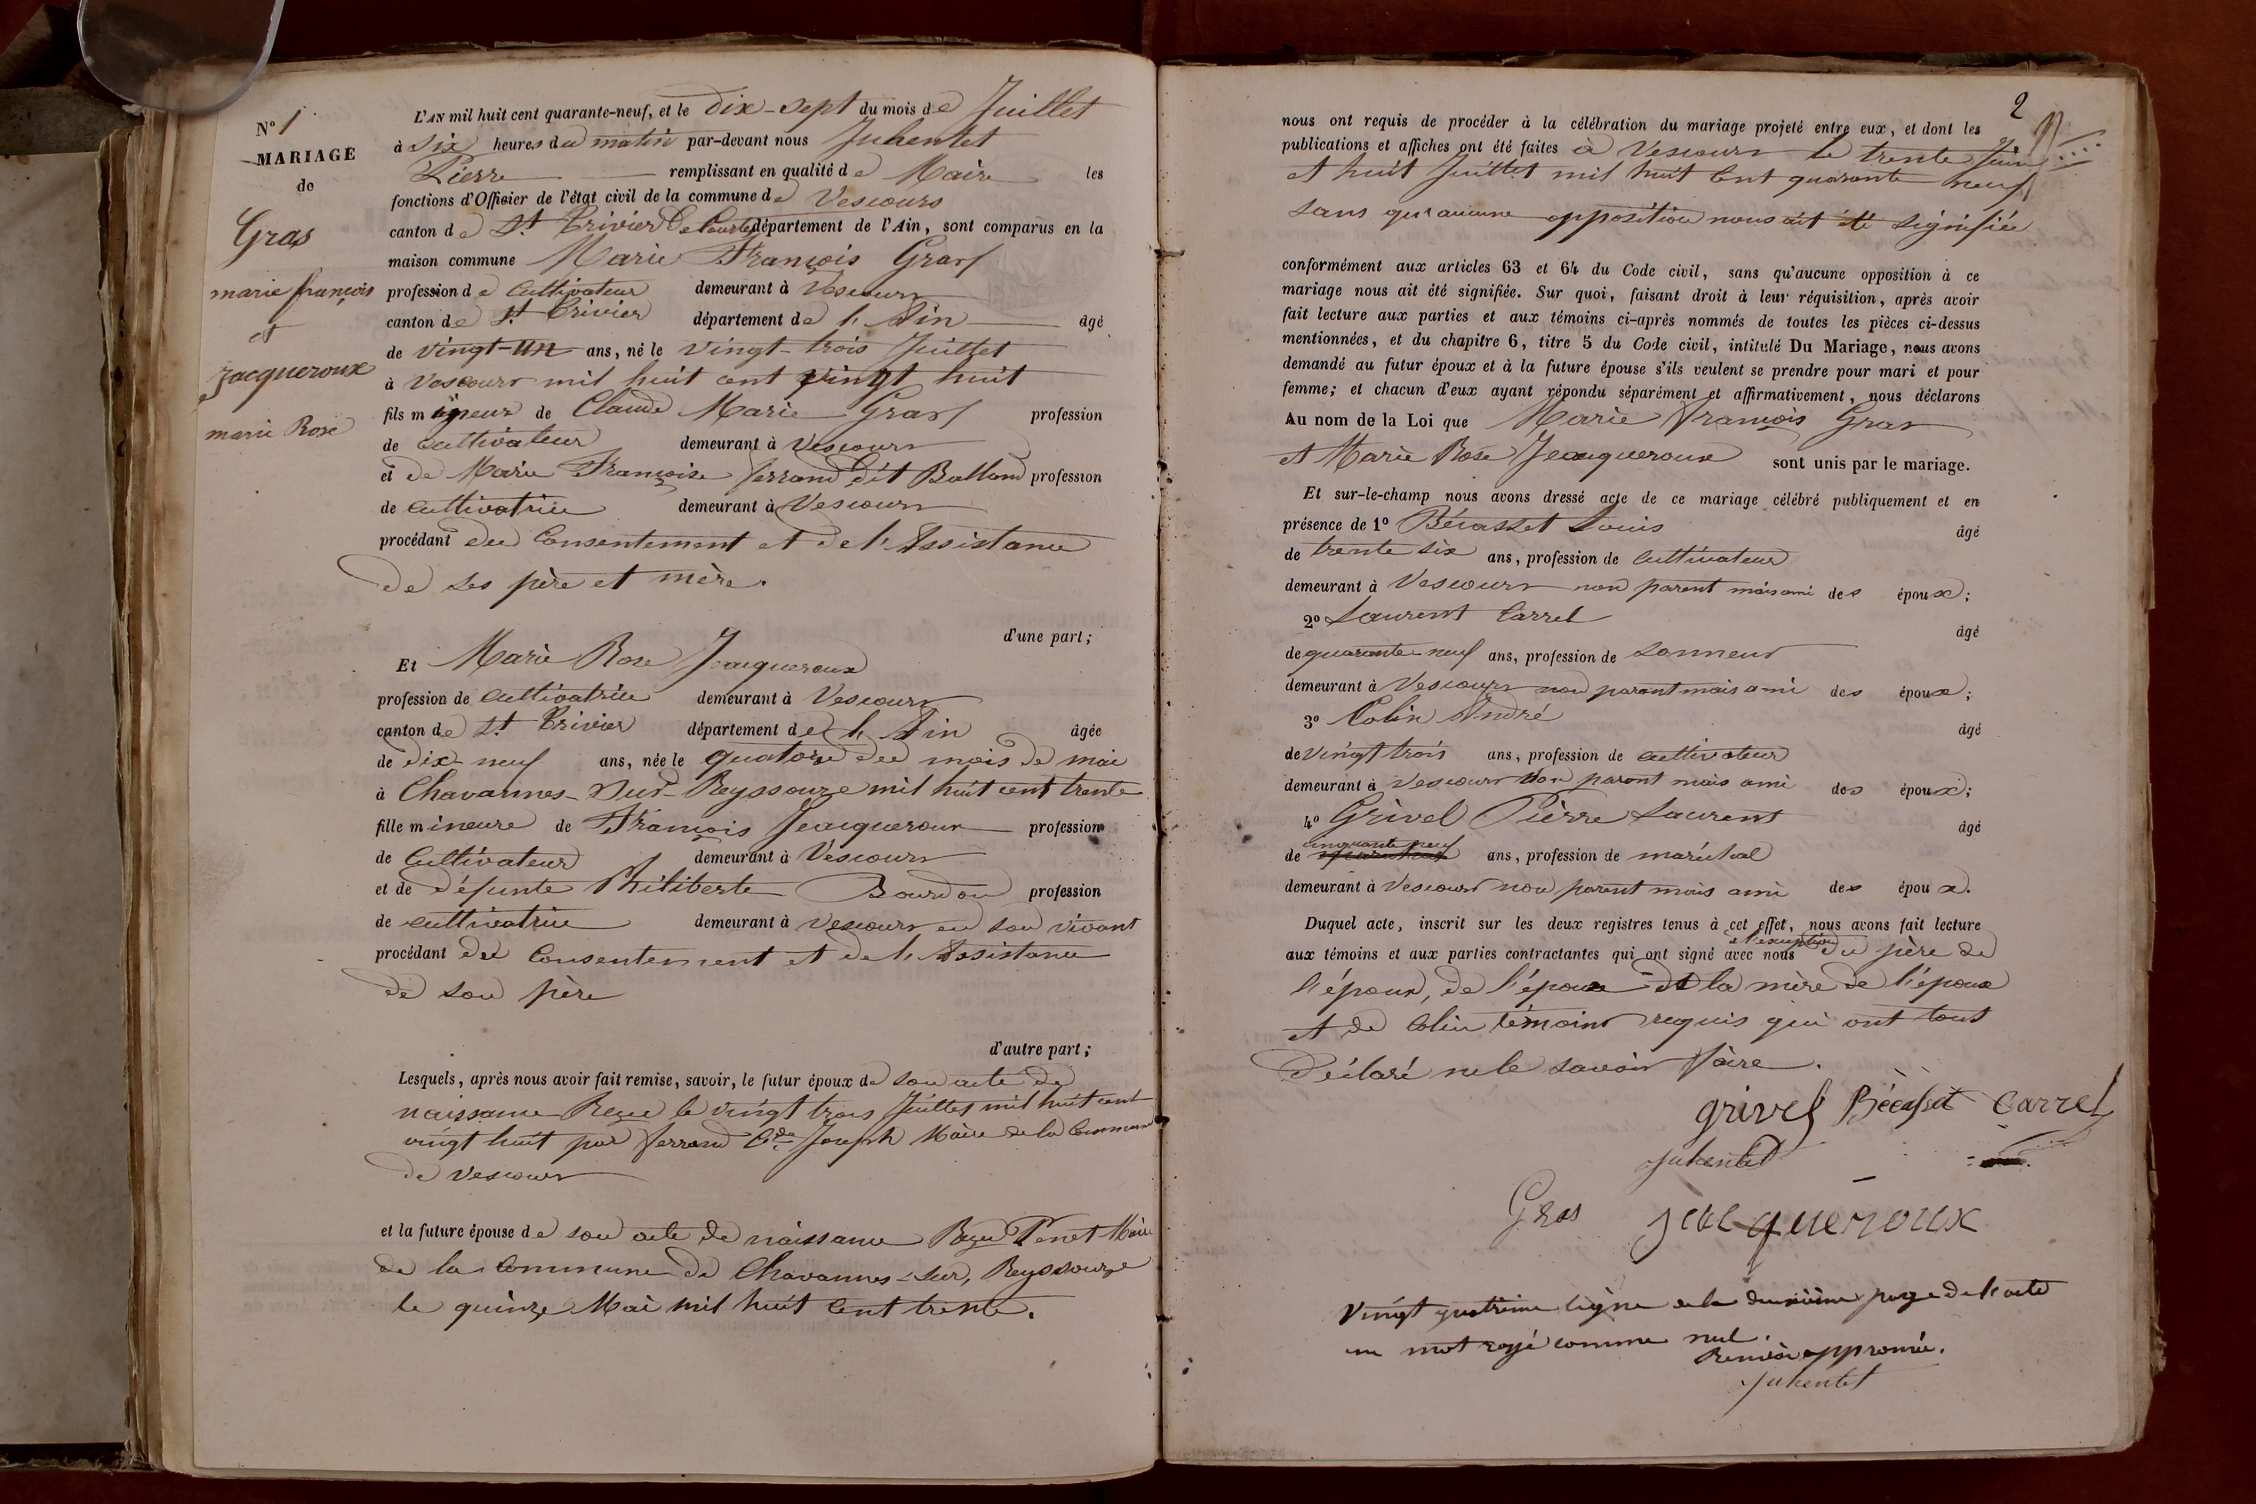 N° 1
MARIAGE
de
Gras
marie françois
et
Jacqueroux
marie Rose
L'AN mil huit cent quarante-neuf, et le dix-sept du mois de Juillet
à six heures du matin par-devant nous Juhentet
Pierre remplissant en qualité de Maire les
fonctions d'Officier de l'état civil de la commune de Vescours
canton de St Trivier De Courtes département de l'Ain, sont comparus en la
maison commune Marie François Gras
profession de Cultivateur demeurant à Vescours
canton de St Trivier département de l'Ain âgé
de vingt-un ans, né le vingt-trois Juillet
à Vescours mil huit cent vingt huit
fils mineur de Claude Marie Gras profession
de cultivateur demeurant à Vescours
et de Marie Françoise ferrand dit Balland profession
de cultivatrice demeurant à Vescours
procédant du Consentement et de l'Assistance
de ses père et mère.
d'une part;
Et Marie Rose Jacqueroux
profession de cultivatrice demeurant à Vescours
canton de St Trivier département de l'Ain âgée
de dix-neuf ans, née le quatorze du mois de mai
à Chavannes-Sur-Reyssouze mil huit cent trente
fille mineure de François Jacqueroux profession
de Cultivateur demeurant à Vescours
et de défunte Philiberte Bourdon profession
de cultivatrice demeurant à Vescours en son vivant
procédant du Consentement et de l'Assistance
de son père
d'autre part;
Lesquels, après nous avoir fait remise, savoir, le futur époux de son acte de
naissance Reçu le vingt trois Juillet mil huit cent
vingt huit par ferrand Cde Joseph Maire de la Commune
de Vescours
et la future épouse de son acte de naissance Reçu Penet Maire
de la Commune de Chavannes-sur, Reyssouze
le quinze Mai mil huit cent trente.
2
nous ont requis de procéder à la célébration du mariage projeté entre eux, et dont les
publications et affiches ont été faites à Vescours le trente Juin
et huit Juillet mil huit Cent quarante neuf
sans qu'aucune opposition nous ait été signifiée
conformément aux articles 63 et 64 du Code civil, sans qu'aucune opposition à ce
mariage nous ait été signifiée. Sur quoi, faisant droit à leur réquisition, après avoir
fait lecture aux parties et aux témoins ci-après nommés de toutes les pièces ci-dessus
mentionnées, et du chapitre 6, titre 5 du Code civil, intitulé Du Mariage, nous avons
demandé au futur époux et à la future épouse s'ils veulent se prendre pour mari et pour
femme; et chacun d'eux ayant répondu séparément et affirmativement, nous déclarons
Au nom de la Loi que Marie François Gras
et Marie Rose Jacqueroux sont unis par le mariage.
Et sur-le-champ nous avons dressé acte de ce mariage célébré publiquement et en
présence de 1° Bécasset Louis âgé
de trente six ans, profession de cultivateur
demeurant à Vescours non parent mais ami des époux;
2° Laurent Carrel âgé
de quarante-neuf ans, profession de sonneur
demeurant à Vescours non parent mais ami des époux;
3° Colin André âgé
de vingt trois ans, profession de cultivateur
demeurant à Vescours non parent mais ami des époux;
4° Grivel Pierre Laurent âgé
de cinquante neuf ans, profession de maréchal
demeurant à Vescours non parent mais ami des époux.
Duquel acte, inscrit sur les deux registres tenus à cet effet, nous avons fait lecture
aux témoins et aux parties contractantes qui ont signé avec nous à l'exception du père de
l'époux, de l'époux et la mère de l'époux
et de Colin témoins requis qui ont tous
déclaré ne le savoir faire.
grivel Bécasset Carrel
Juhentet
Gras jacqueroux
Vingt quatrième ligne de la deuxième page de l'acte
un mot rayé comme nul.
Renvoi approuvé.
Juhentet